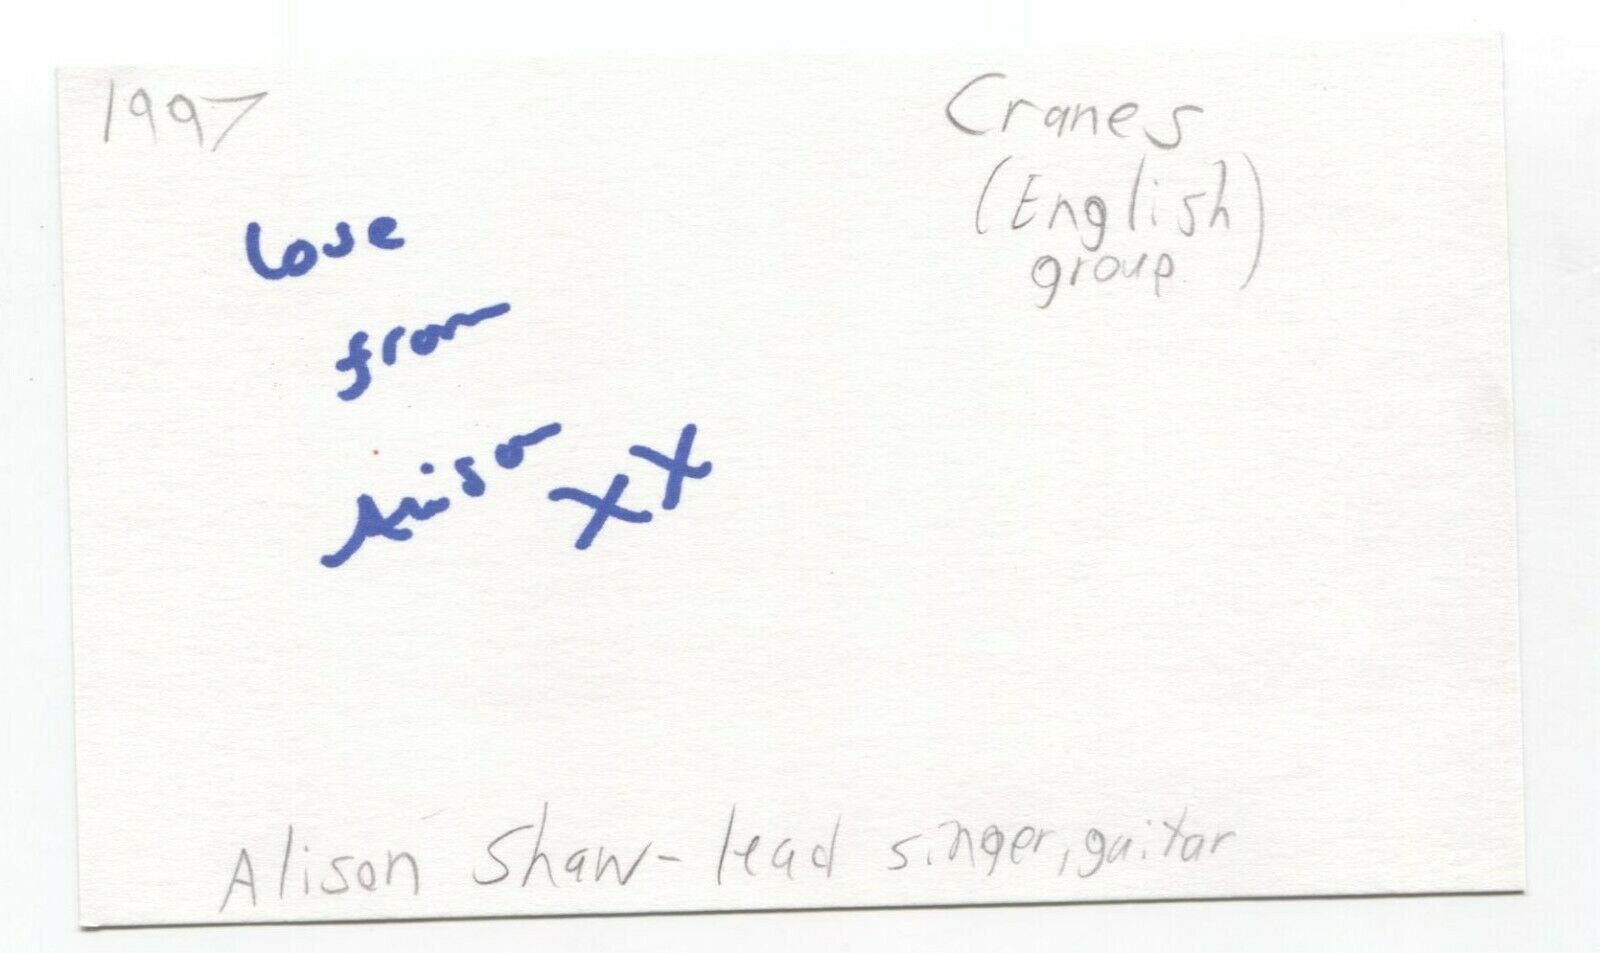 1997
Cranes
(English
group)
Love
from
Alison XX
Alison Shaw- lead singer, guitar